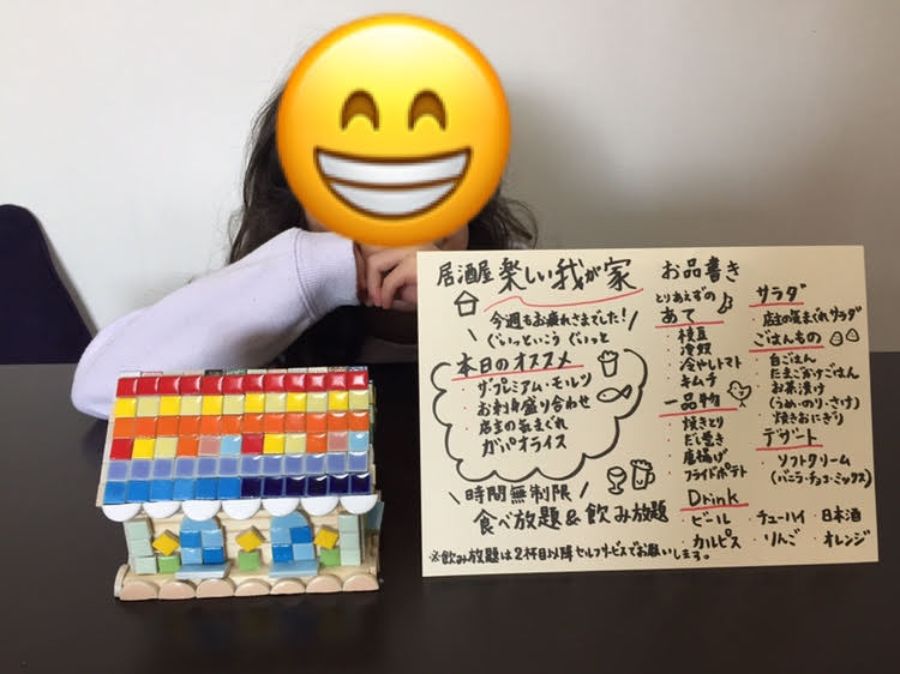 居酒屋 楽しい我が家
今週もお疲れさまでした!
ぐいっといこう ぐいっと
本日のオススメ
・ザ・プレミアム・モルツ
・お刺身盛り合わせ
・店主の気まぐれ
ガパオライス
時間無制限
食べ放題&飲み放題
お品書き
とりあえずの
あて
・枝豆
・冷奴
・冷やしトマト
・キムチ
一品物
・焼きとり
・だし巻き
・唐揚げ
・フライドポテト
サラダ
・店主の気まぐれサラダ
ごはんもの
・白ごはん
・たまごかけごはん
・お茶漬け
(うめ・のり・さけ)
・焼きおにぎり
デザート
・ソフトクリーム
(バニラ・チョコ・ミックス)
Drink
・ビール ・チューハイ ・日本酒
・カルピス ・りんご ・オレンジ
※飲み放題は2杯目以降セルフサービスでお願いします。